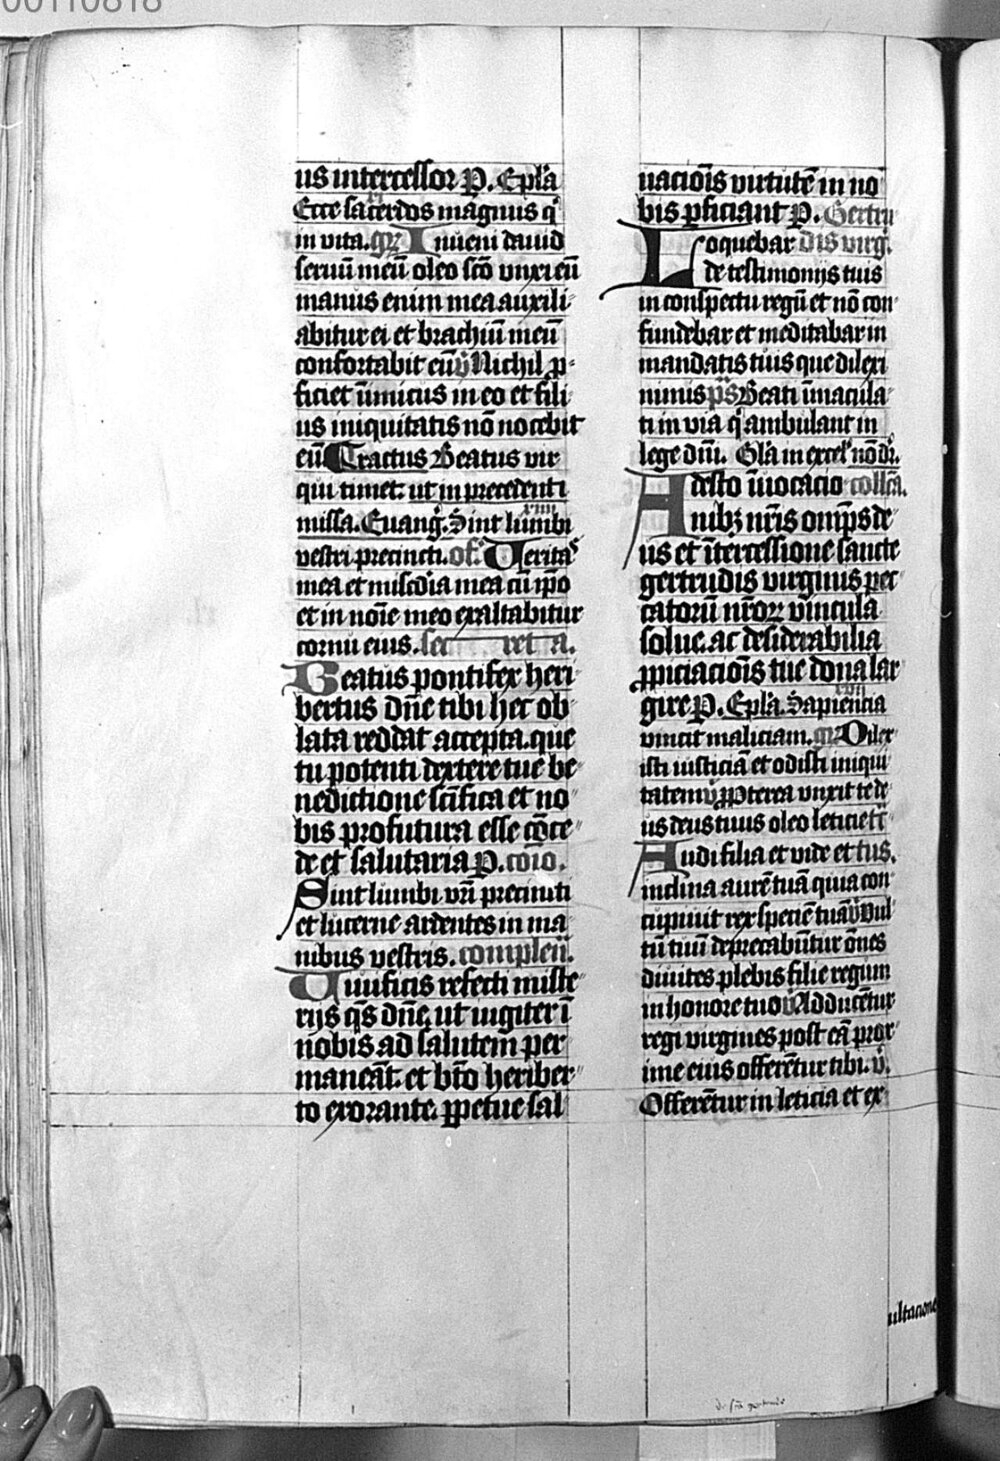 00110818
us intercessor P. Epl̄a
Ecce sacerdos magnus q'
in vita. gr̄ Inueni dauid
seruū meū oleo sc̄o vnxi eū
manus enim mea auxili-
abitur ei et brachiū meū
confortabit eū v̄ Nichil p-
ficiet īimicus in eo et fili
us iniquitatis nō nocebit
eū Tractus Beatus vir
qui timet: ut in precedenti
missa. Euanḡ. Sint lumbi
vestri precincti. of. Veritas
mea et mīscd̄ia mea cū ip̄o
et in noīe meo exaltabitur
cornu eius. sec ret a.
Beatus pontifex heri-
bertus dn̄e tibi hec ob-
lata reddat accepta. que
tu potenti dextere tue be-
nedictione sc̄ifica et no-
bis profutura esse cōce-
de et salutaria P. cōio.
Sint lumbi vr̄i precincti
et lucerne ardentes in ma
nibus vestris. complen̄.
Viuificis refecti miste-
rijs qs̄ dn̄e, ut iugiter ī
nobis ad salutem per
maneāt. et bt̄o heriber-
to exorante. ꝑpetue sal
uacioīs virtutē in no
bis ꝓficiant P. Gertru
Loquebar dis virḡ.
de testimonijs tuis
in conspectu regū et nō con-
fundebar et meditabar in
mandatis tuis que dilexi
nimis ps̄ Beati īmacula-
ti in via q' ambulant in
lege dn̄i. Gl̄a in excel' nō dr̄.
Adesto īuocacio collc̄a.
nibꝫ nr̄is omp̄s de-
us et ītercessione sancte
gertrudis virginis pec-
catorū nr̄oꝝ vincula
solue. ac desiderabilia
ꝓpiciacioīs tue dona lar
gire P. Epl̄a. Sapiencia
vincit maliciam. gr̄ Dilex-
isti iusticiā et odisti iniqui
tatem v̄ Ꝓpterea vnxit te de-
us deus tuus oleo leticie tr̄
Audi filia et vide et tus.
inclina aurē tuā quia con-
cupiuit rex speciē tuā v̄ Vul-
tū tuū deprecabūtur ōnes
diuites plebis filie regum
in honore tuo v̄ Adducētur
regi virgines post eā prox-
ime eius offerētur tibi. v̄.
Offerētur in leticia et ex-
ultacione